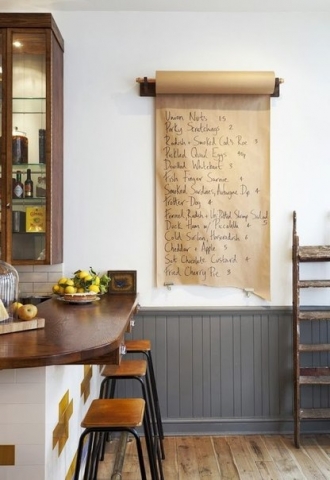 Union Nuts 1.5
Pork Scratchings 2
Radish & Smoked Cod's Roe 3
Pickled Quail Eggs
Devilled Whitebait 3
Fish Finger Sarnie 4
Smoked Sardines, Aubergine Dip 4
Trotter Dog 4
Fennel, Radish & Shrimp Salad 5
Duck Ham w/ Piccalilli 4
Cold Sirloin, Horseradish 6
Cheddar & Apple 3
Set Chocolate Custard 4
Fried Cherry Pie 3